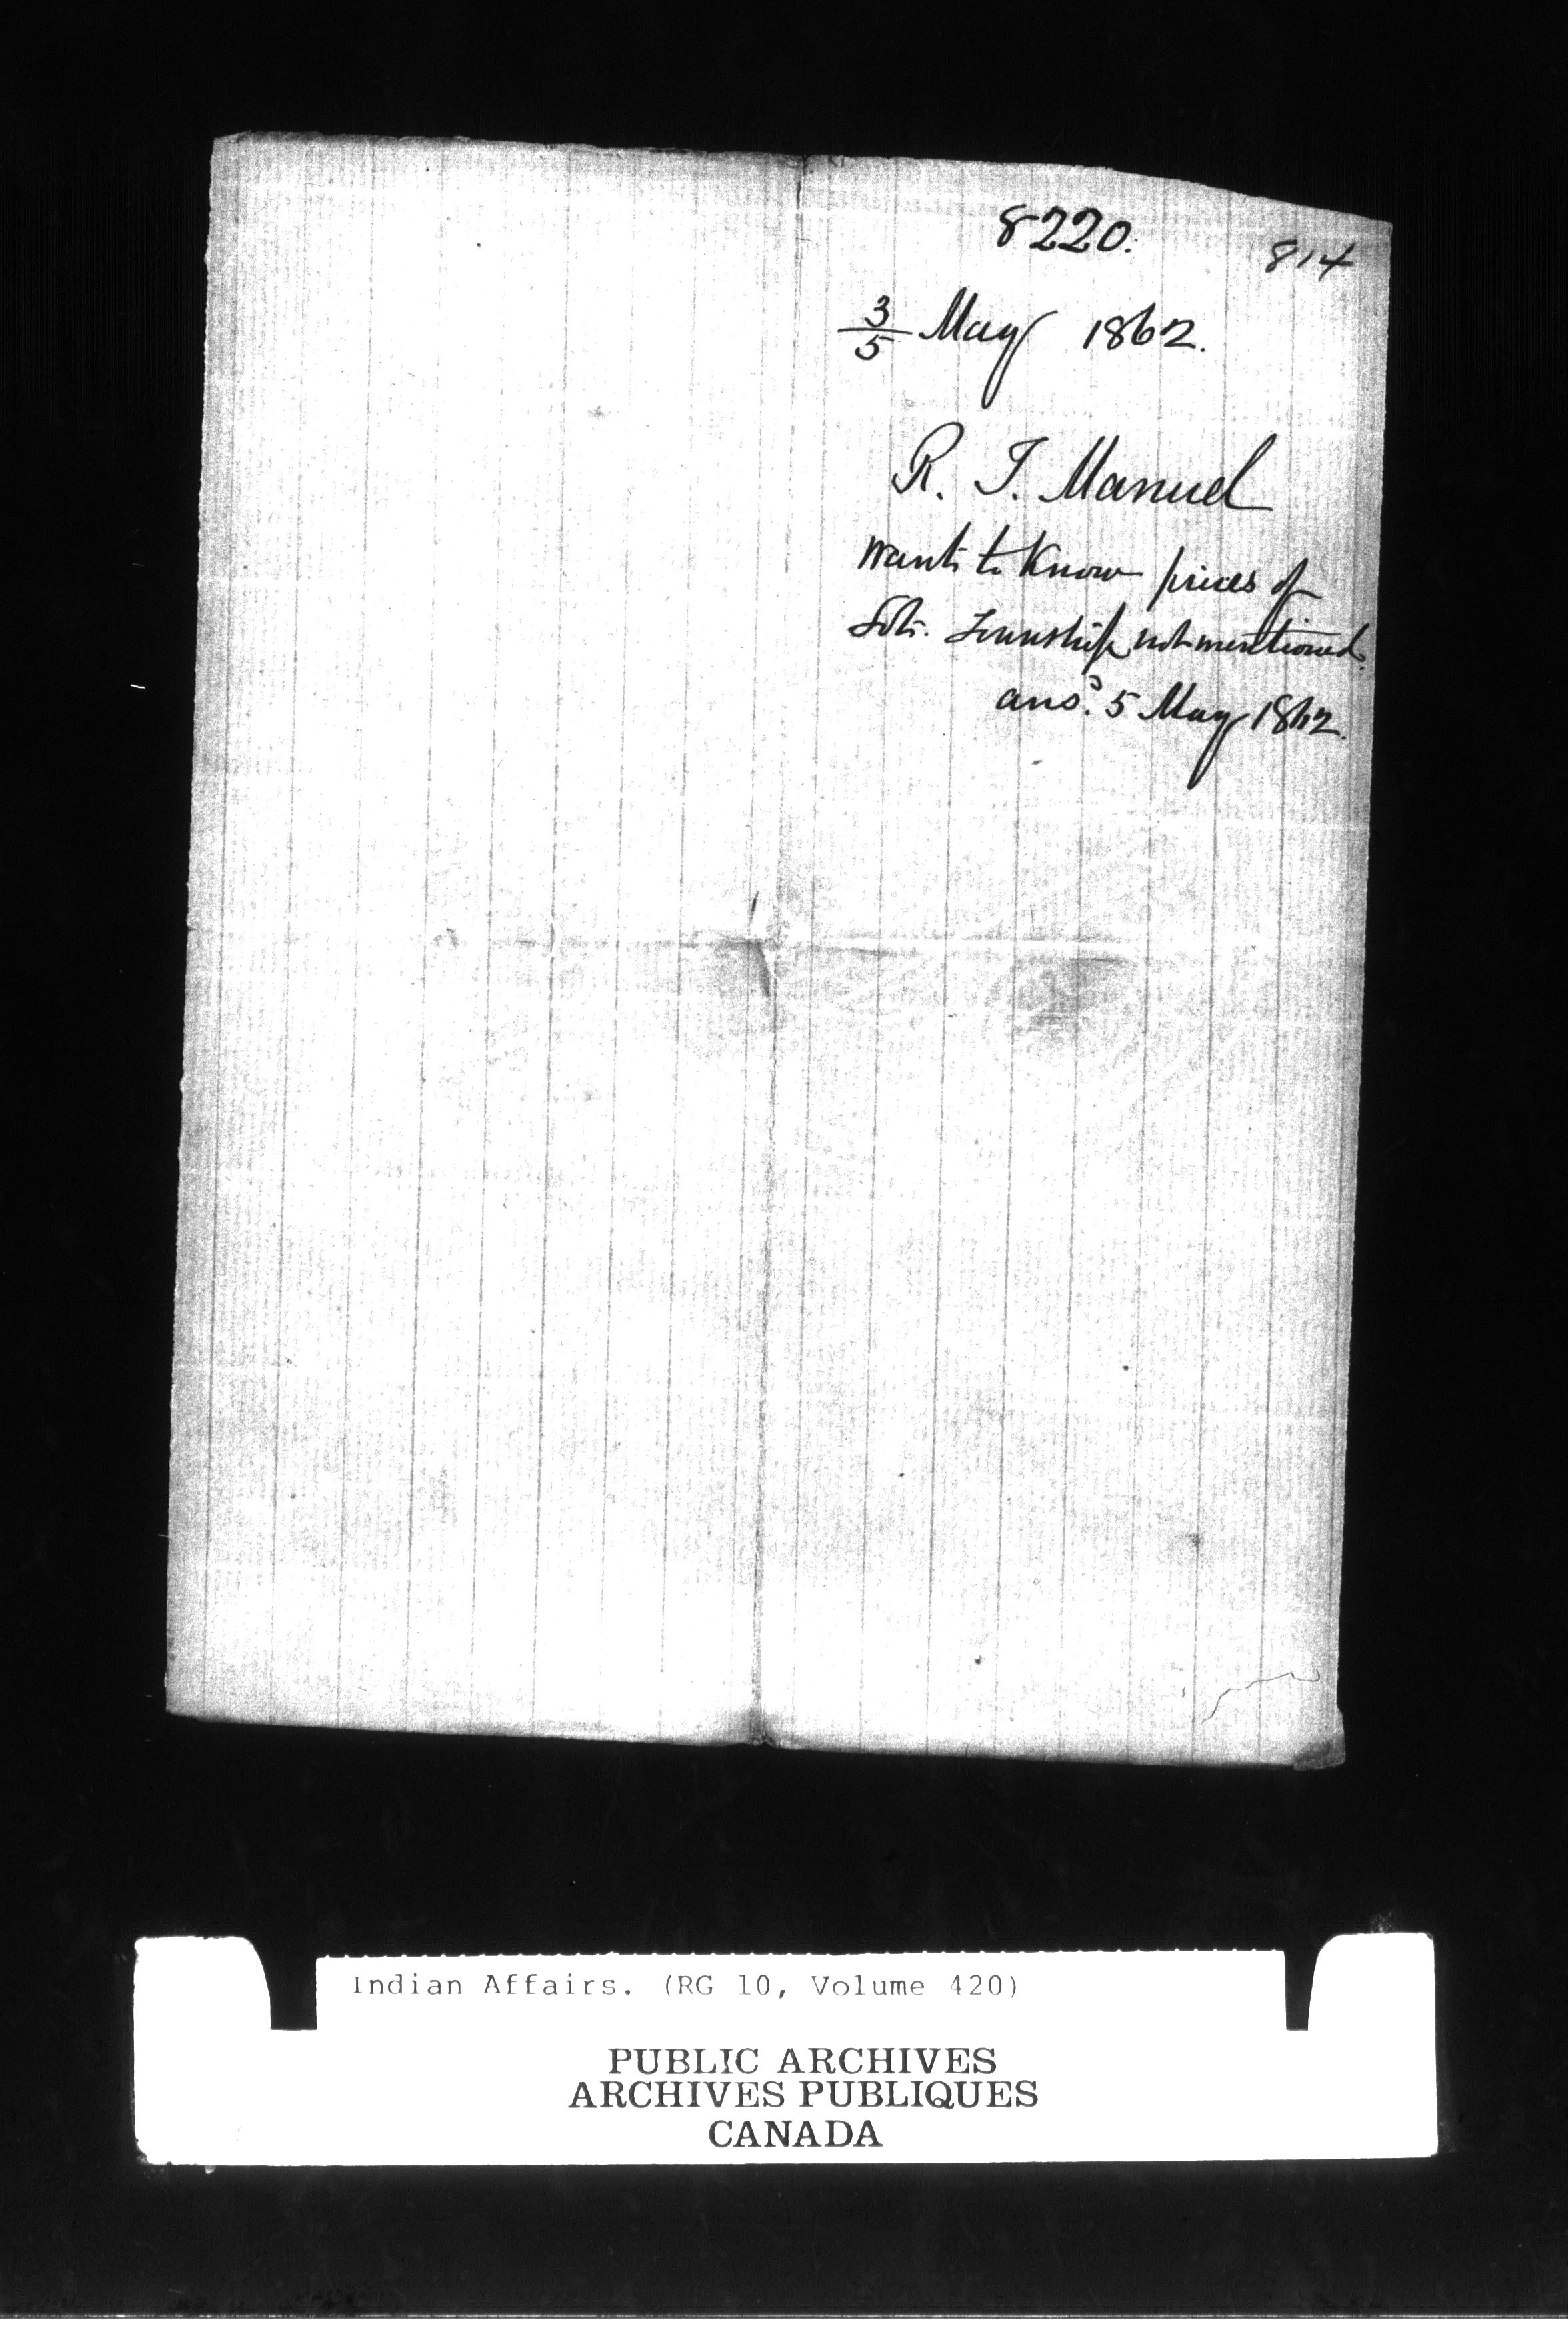 8220.
814
3/5 May 1862.
R. T. Manuel
wants to Know prices of
Lots. Township not mentioned.
ansd. 5 May 1862.
Indian Affairs. (RG 10, Volume 420)
PUBLIC ARCHIVES
ARCHIVES PUBLIQUES
CANADA